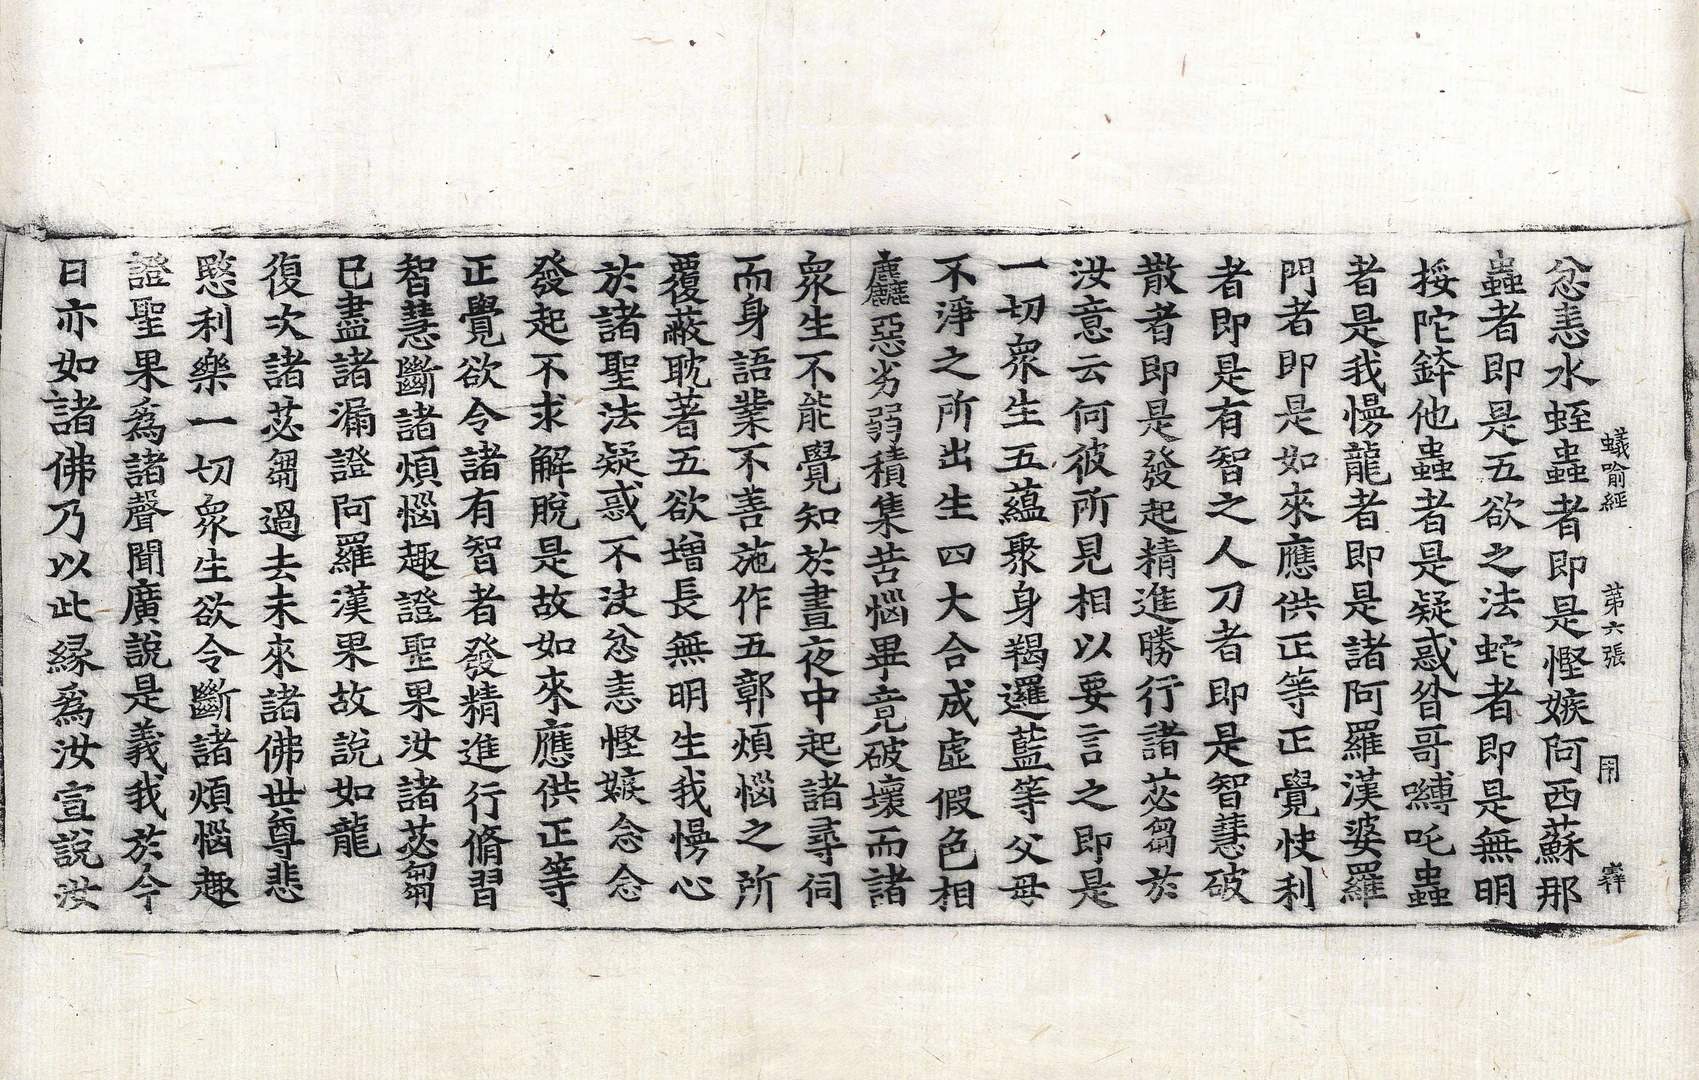 忿恚水蛭蟲者即是慳嫉阿西蘇那
蟲者即是五欲之法蛇者即是無明
挼陀鉢他蟲者是疑惑昝哥嚩吒蟲
者是我慢龍者即是諸阿羅漢婆羅
門者即是如來應供正等正覺快利
者即是有智之人刀者即是智慧破
散者即是發起精進勝行諸苾芻於
汝意云何彼所見相以要言之即是
一切衆生五蘊聚身羯邏藍等父母
不淨之所出生四大合成虛假色相
麤惡劣弱積集苦惱畢竟破壞而諸
衆生不能覺知於晝夜中起諸尋伺
而身語業不善施作五鄣煩惱之所
覆蔽耽著五欲增長無明生我慢心
於諸聖法疑惑不決忿恚慳嫉念念
發起不求解脫是故如來應供正等
正覺欲令諸有智者發精進行脩習
智慧斷諸煩惱趣證聖果汝諸苾芻
已盡諸漏證阿羅漢果故說如龍
復次諸苾芻過去未來諸佛世尊悲
愍利樂一切衆生欲令斷諸煩惱趣
證聖果爲諸聲聞廣說是義我於今
日亦如諸佛乃以此緣爲汝宣說汝
蟻喻經 第六張